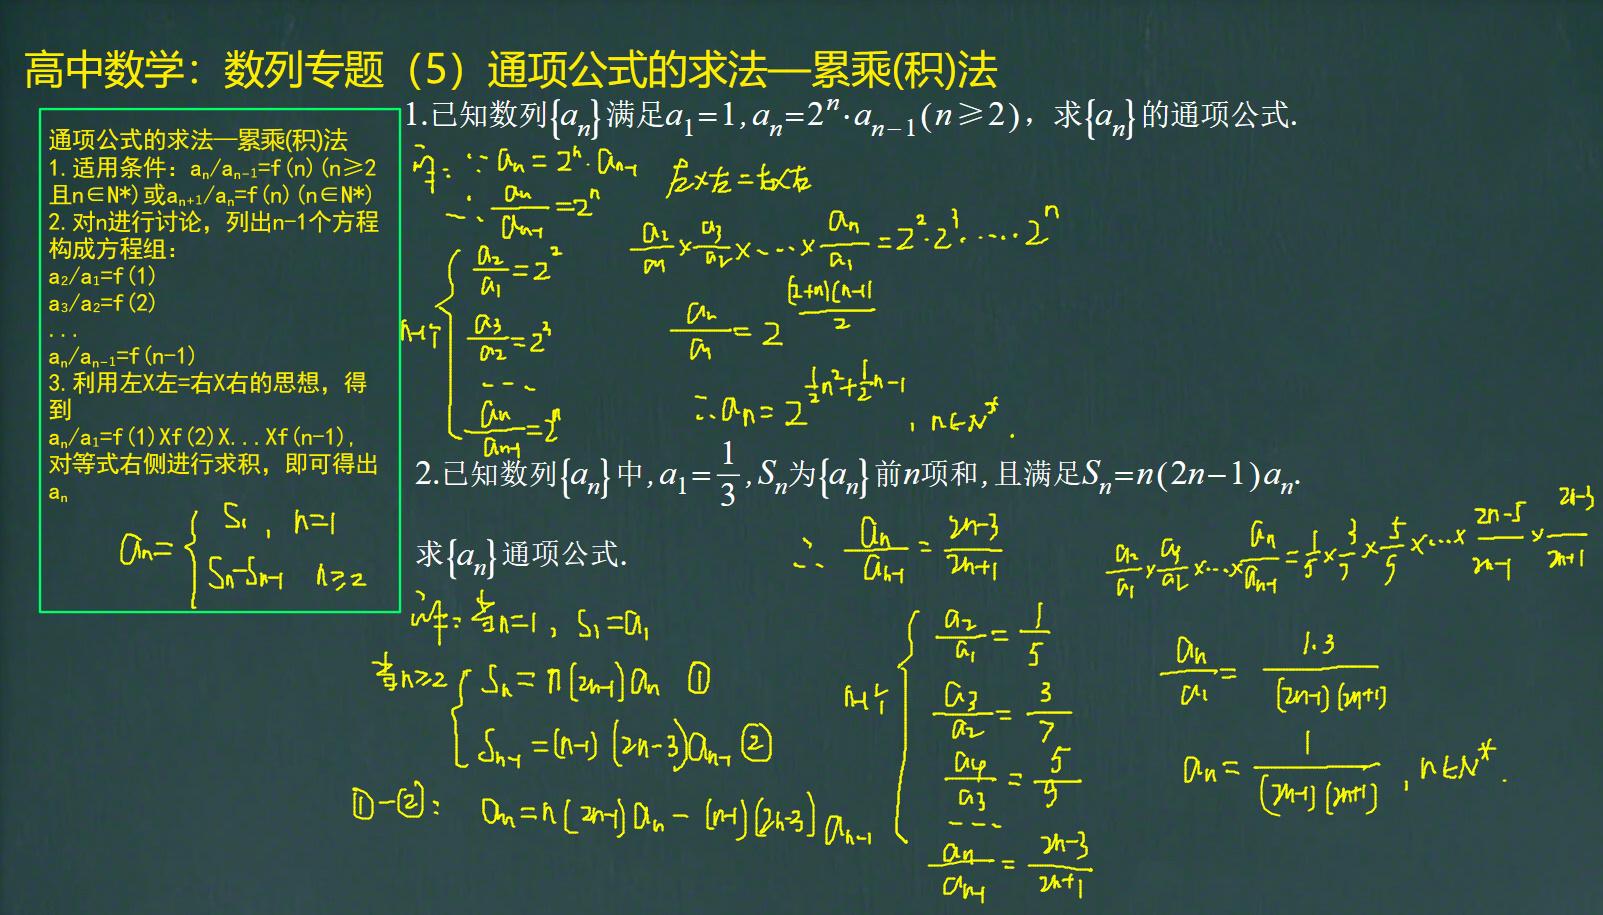 高中数学：数列专题（5）通项公式的求法—累乘(积)法
通项公式的求法—累乘(积)法
1.适用条件：aₙ/aₙ₋₁=f(n)(n≥2
且n∈N*)或aₙ₊₁/aₙ=f(n)(n∈N*)
2.对n进行讨论，列出n-1个方程
构成方程组：
a₂/a₁=f(1)
a₃/a₂=f(2)
...
aₙ/aₙ₋₁=f(n-1)
3.利用左X左=右X右的思想，得
到
aₙ/a₁=f(1)Xf(2)X...Xf(n-1),
对等式右侧进行求积，即可得出
aₙ
aₙ= { S₁, n=1
Sₙ-Sₙ₋₁ n≥2
1.已知数列{aₙ}满足a₁=1,aₙ=2ⁿ·aₙ₋₁(n≥2)，求{aₙ}的通项公式.
解：∵aₙ=2ⁿ·aₙ₋₁
∴aₙ/aₙ₋₁=2ⁿ
n-1个 { a₂/a₁=2²
a₃/a₂=2³
...
aₙ/aₙ₋₁=2ⁿ
左×左=右×右
a₂/a₁×a₃/a₂×...×aₙ/a₁=2²·2³·...·2ⁿ
aₙ/a₁=2^((2+n)(n-1)/2)
∴aₙ=2^(1/2n²+1/2n-1), n∈N*.
2.已知数列{aₙ}中,a₁=1/3,Sₙ为{aₙ}前n项和,且满足Sₙ=n(2n-1)aₙ.
求{aₙ}通项公式.
解：当n=1, S₁=a₁
当n≥2 { Sₙ=n(2n-1)aₙ ①
Sₙ₋₁=(n-1)(2n-3)aₙ₋₁ ②
①-②: aₙ=n(2n-1)aₙ-(n-1)(2n-3)aₙ₋₁
∴ aₙ/aₙ₋₁=2n-3/2n+1
n-1个 { a₂/a₁=1/5
a₃/a₂=3/7
a₄/a₃=5/9
...
aₙ/aₙ₋₁=2n-3/2n+1
a₂/a₁×a₄/a₂×...×aₙ/aₙ₋₁=1/5×3/7×5/5×...×2n-5/2n-1×2n-3/2n+1
aₙ/a₁=1·3/(2n-1)(2n+1)
aₙ=1/(2n-1)(2n+1), n∈N*.